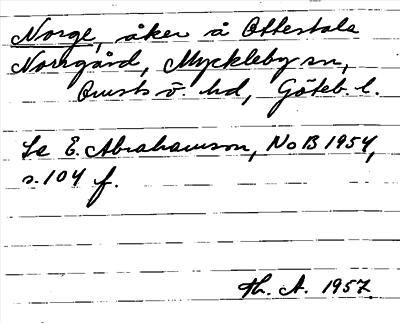 Norge, åker å Ottestala
Norrgård, Myckleby sn,
Orusts ö. hd, Göteb. l.
Se E. Abrahamson, NoB 1954,
s. 104 f.
Th. A. 1957.